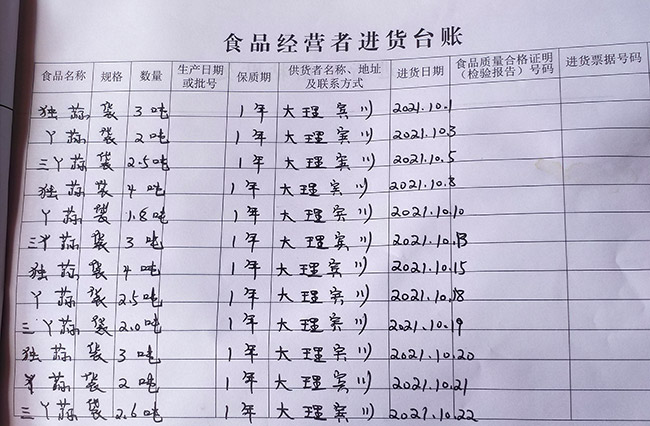 食品经营者进货台账
食品名称 规格 数量 生产日期或批号 保质期 供货者名称、地址及联系方式 进货日期 食品质量合格证明（检验报告）号码 进货票据号码
独蒜 袋 3吨 1年 大理宾川 2021.10.1
丫蒜 袋 2吨 1年 大理宾川 2021.10.3
三丫蒜 袋 2.5吨 1年 大理宾川 2021.10.5
独蒜 袋 4吨 1年 大理宾川 2021.10.8
丫蒜 袋 1.8吨 1年 大理宾川 2021.10.10
三丫蒜 袋 3吨 1年 大理宾川 2021.10.13
独蒜 袋 4吨 1年 大理宾川 2021.10.15
丫蒜 袋 2.5吨 1年 大理宾川 2021.10.18
三丫蒜 袋 2.0吨 1年 大理宾川 2021.10.19
独蒜 袋 3吨 1年 大理宾川 2021.10.20
蒜 袋 2吨 1年 大理宾川 2021.10.21
三丫蒜 袋 2.6吨 1年 大理宾川 2021.10.22